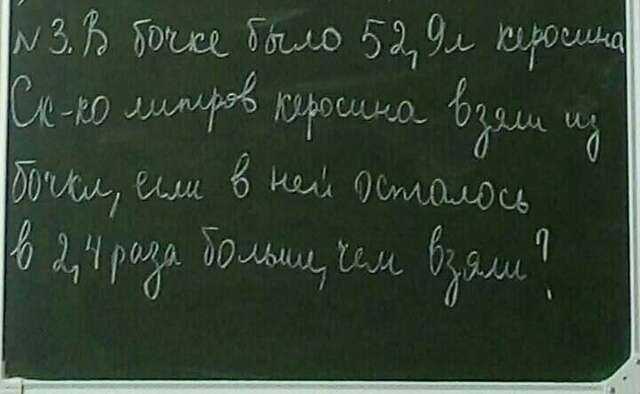 N 3. В бочке было 52,9л керосина
Ск-ко литров керосина взяли из
бочки, если в ней осталось
в 2,4 раза больше, чем взяли?